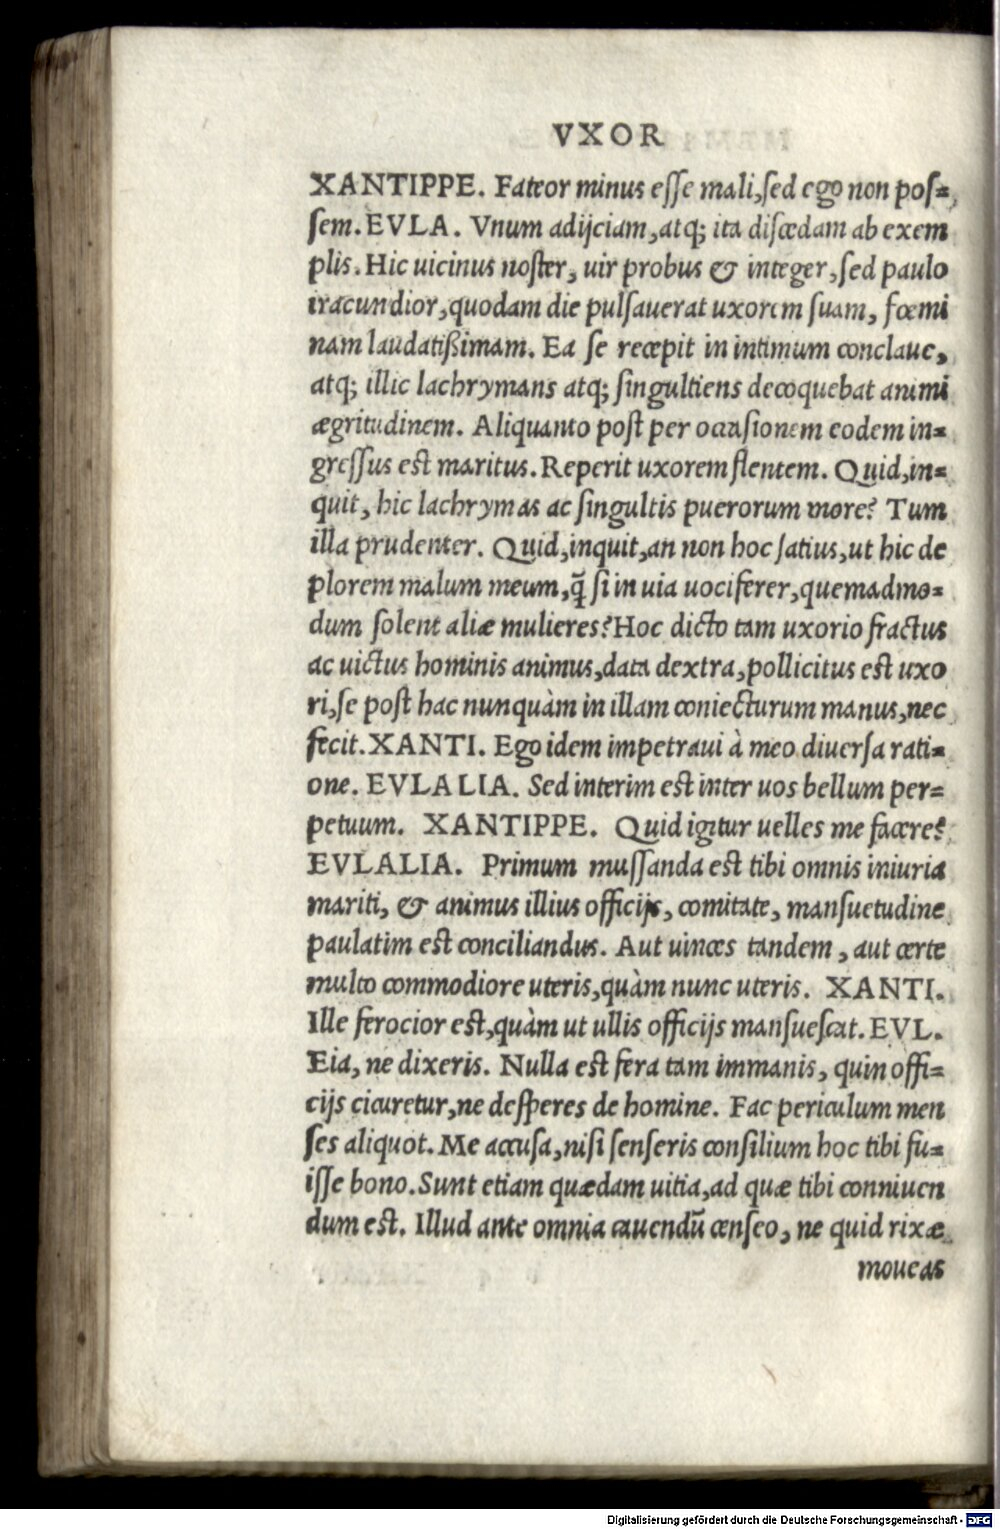 VXOR
XANTIPPE. Fateor minus esse mali, sed ego non pos=
sem. EVLA. Vnum adijciam, atq; ita discedam ab exem
plis. Hic uicinus noster, uir probus & integer, sed paulo
iracundior, quodam die pulsauerat uxorem suam, fœmi
nam laudatißimam. Ea se recepit in intimum conclaue,
atq; illic lachrymans atq; singultiens decoquebat animi
ægritudinem. Aliquanto post per occasionem eodem in=
gressus est maritus. Reperit uxorem flentem. Quid, in=
quit, hic lachrymas ac singultis puerorum more? Tum
illa prudenter. Quid, inquit, an non hoc satius, ut hic de
plorem malum meum, q̃ si in uia uociferer, quemadmo=
dum solent aliæ mulieres? Hoc dicto tam uxorio fractus
ac uictus hominis animus, data dextra, pollicitus est uxo
ri, se post hac nunquàm in illam coniecturum manus, nec
fecit. XANTI. Ego idem impetraui à meo diuersa rati=
one. EVLALIA. Sed interim est inter uos bellum per=
petuum. XANTIPPE. Quid igitur uelles me facere?
EVLALIA. Primum mussanda est tibi omnis iniuria
mariti, & animus illius officijs, comitate, mansuetudine
paulatim est conciliandus. Aut uinces tandem, aut certe
multo commodiore uteris, quàm nunc uteris. XANTI.
Ille ferocior est, quàm ut ullis officijs mansuescat. EVL.
Eia, ne dixeris. Nulla est fera tam immanis, quin offi=
cijs cicuretur, ne desperes de homine. Fac periculum men
ses aliquot. Me accusa, nisi senseris consilium hoc tibi fu=
isse bono. Sunt etiam quædam uitia, ad quæ tibi conniuen
dum est. Illud ante omnia cauendũ censeo, ne quid rixæ
moueas
Digitalisierung gefördert durch die Deutsche Forschungsgemeinschaft - DFG